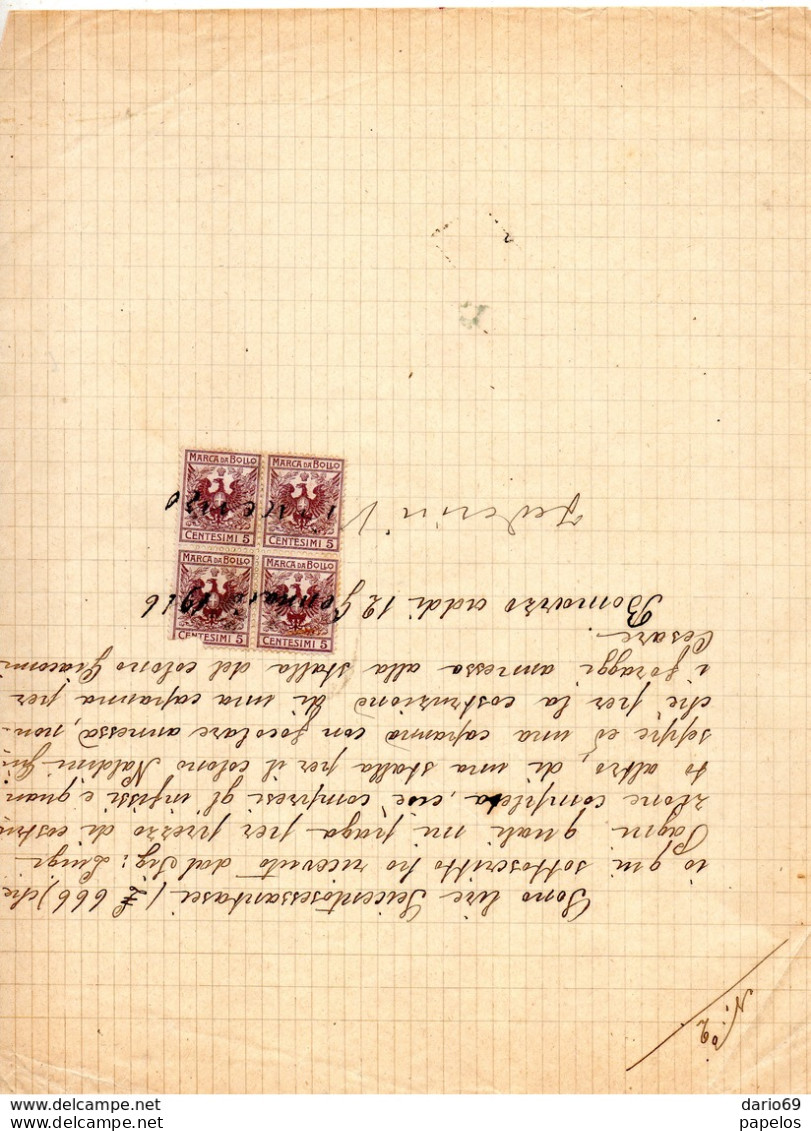 N.º 2
Sono lire Seicentosessantasei (£ 666) che
io qui sottoscritto ho ricevuto dal Sig: Luigi
quali mi paga per prezzo di costru
zione completa, cioè compresi gl'infissi e quan
to altro, di una stalla per il colono Naldini Giu
seppe ed una capanna con focolare annessa, non
che per la costruzione di una capanna per
i foraggi annessa alla stalla del colono Giacomi
Cesare.
Bomarzo addì 12 Gennaio 1916
MARCA DA BOLLO
CENTESIMI 5
MARCA DA BOLLO
CENTESIMI 5
MARCA DA BOLLO
CENTESIMI 5
MARCA DA BOLLO
CENTESIMI 5
dario69
papelos
www.delcampe.net